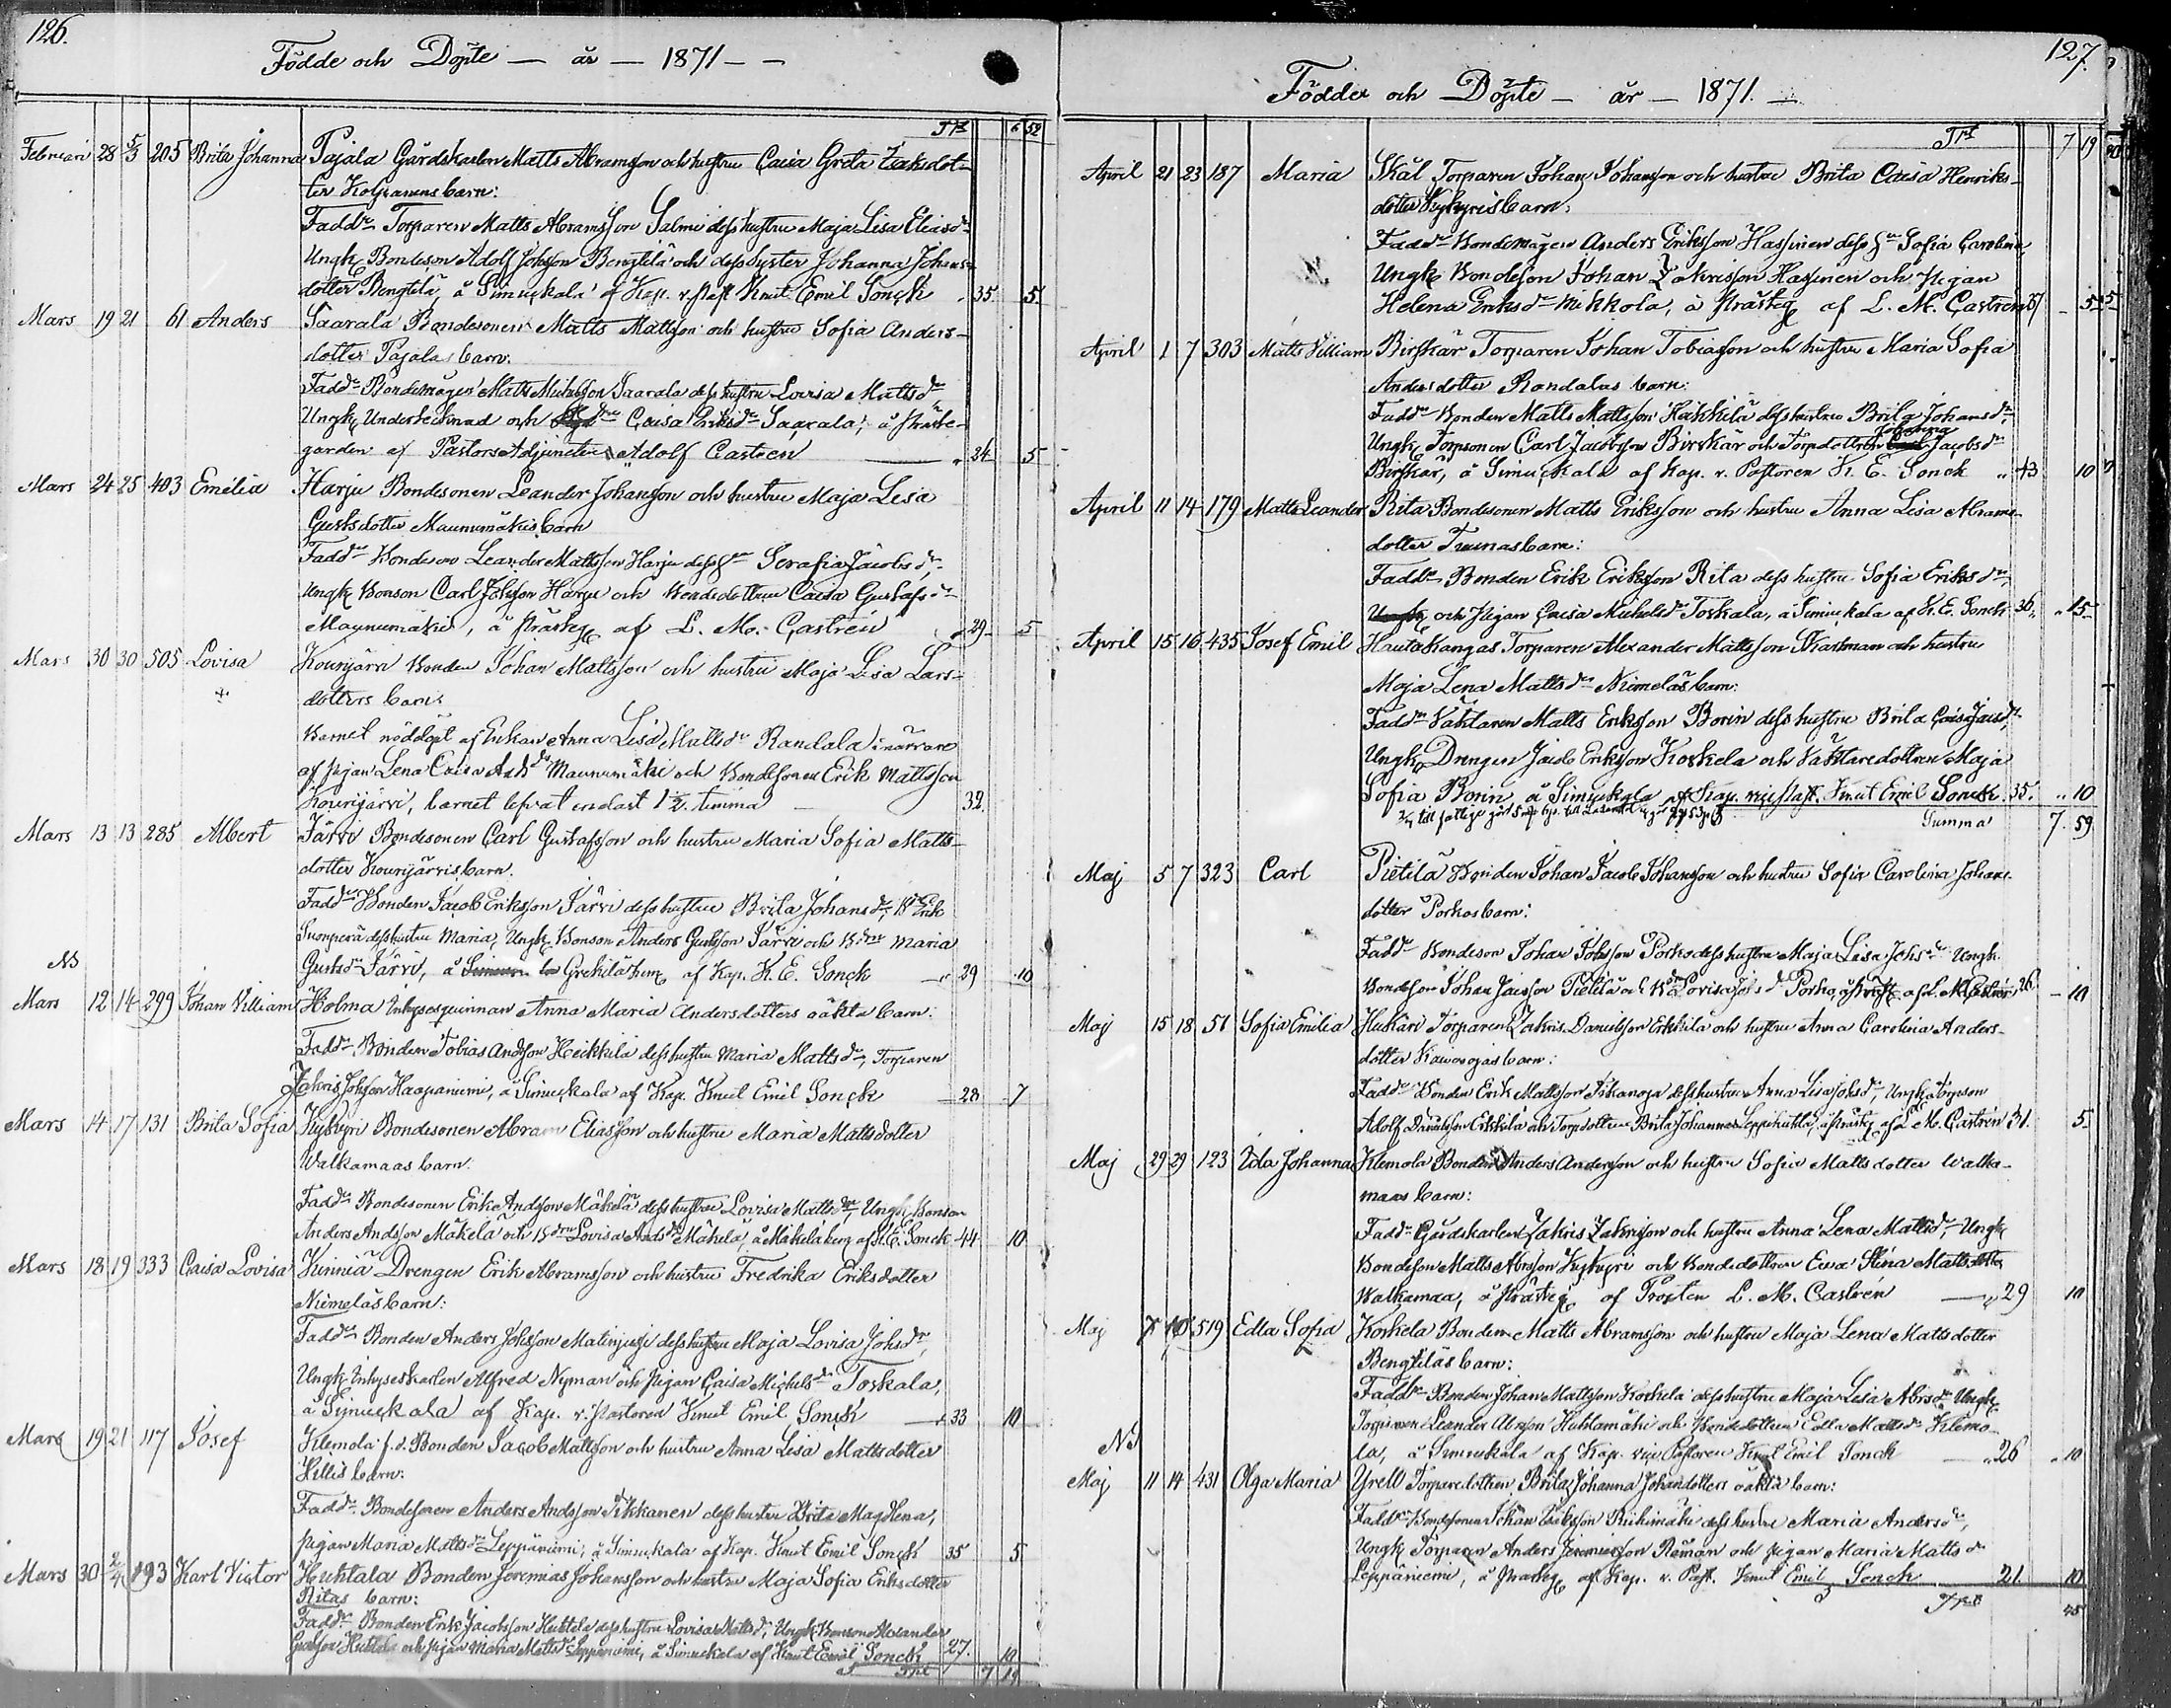 126.
Födde och Döpte — år — 1871 — —
Trt 6 52
Februari 28 5/3 205 Brita Johanna Pajala Gårdskarlen Matts Abramsson och hustru Caisa Greta Isaksdot-
ter Kolpanens barn:
Faddr Torparen Matts Abramsson Salmi dess hustru Maja Lisa Eliasdr
Ungk Bondeson Adolf Johsson Bengtilä och dess syster Johanna Johans-
dotter Bengtilä, å Simuckala af Kap. v. past Knut Emil Sonck 35. 5.
Mars 19 21 61 Anders Saarala Bondesonen Matts Mattsson och hustru Sofia Anders-
dotter Pajalas barn.
Faddr Bondemågen Matts Michelsson Saarala dess hustru Lovisa Mattsdr
Ungk Undertecknad och Caisa Eriksdr Saarala, å Präste-
garden af PastorsAdjuncten Adolf Castrén 24 5
Mars 24 25 403 Emelia Harju Bondesonen Leander Johansson och hustru Maja Lisa
Gustsdotter Maunumäkis barn
Faddr Bondeson Leander Mattsson Harju dess hu Serafia Jacobsdr
Ungk Bonson Carl Johsson Harju och Bondedottren Caisa Gustafsdr
Maunumäki, å prästg af L. M. Castrén 29 5
Mars 30 30 505 Lovisa Kourijärvi Bonden Johan Mattsson och hustru Maja Lisa Lars-
dotters barn:
Barnet nöddöpt af Enkan Anna Lisa Mattsdr Randala i närvaro
af pigan Lena Caisa Andsdr Maunumäki och Bondesonen Erik Mattsson
Kourijärvi, barnet lefvat endast 1 1/2 timma — 32.
Mars 13 13 285 Albert Järvi Bondesonen Carl Gustafsson och hustru Maria Sofia Matts-
dotter Kourijärvis barn.
Faddr Bonden Jacob Eriksson Järvi dess hustru Brita Johansdr, Erik
Suonperä dess hustru Maria, Ungk Bonson Anders Gustsson Järvi och Bdrn Maria
Gustsdr Järvi, å Grekilä af Kap. K. E. Sonck 29 10
NB
Mars 12 14 299 Johan Villiam Holma Inhyseqvinnan Anna Maria Andersdotters oäkta barn:
Faddr Bonden Tobias Andsson Heikkilä dess hustru Maria Mattsdr, Torparen
Zakris Johsson Haapaniemi, å Simuckala af Kap. Knut Emil Sonck 28 7
Mars 14 17 131 Brita Sofia Kykyri Bondesonen Abram Eliasson och hustru Maria Mattsdotter
Walkamaas barn.
Faddr Bondesonen Erik Andsson Mäkelä dess hustru Lovisa Mattsdr, Ungk Bonson
Anders Andsson Mäkelä och Bdrn Lovisa Andsdr Mäkelä, å Mäkelä af K. E. Sonck 44 10
Mars 18 19 333 Caisa Lovisa Kinniä Drengen Erik Abramsson och hustru Fredrika Eriksdotter
Niemeläs barn:
Faddr Bonden Anders Johsson Matinjussi dess hustru Maja Lovisa Johsdr,
Ungk Inhyseskarlen Alfred Nyman och pigan Caisa Michelsdr Toskala,
å Simuckala af Kap. v. pastoren Knut Emil Sonck 33 10
Mars 19 21 117 Josef Klemola f. d. Bonden Jacob Mattsson och hustru Anna Lisa Mattsdotter
Hillis barn:
Faddr Bondesonen Anders Andsson Pikkanen dess hustru Brita Magdlena,
pigan Maria Mattsdr Leppäniemi, å Simuckala af Kap. Knut Emil Sonck 35 5
Mars 30 2/4 193 Karl Victor Huhtala Bonden Jeremias Johansson och hustru Maja Sofia Eriksdotter
Ritas barn:
Faddr Bonden Erik Jacobsson Huhtala dess hustru Lovisa Mattsdr, Ungk Bonson Alexander
Huhtala och pigan Maria Mattsdr Leppäniemi, å Simuckala af Knut Emil Sonck 27. 10
Trt 7 19
127.
Födde och Döpte — år — 1871. —
Trt 7 19
April 21 23 187 Maria Skål Torparen Johan Johansson och hustru Brita Caisa Henriks-
dotter Kykyris barn:
Faddr Bondemågen Anders Eriksson Hassinen dess hu Sofia Carolina
Ungk Bondeson Johan Zakrisson Hassinen och Pigan
Helena Eriksdr Mikkola, å Prästg af L. M. Castrén 37 5
April 1 7 303 Matts Villiam Birskär Torparen Johan Tobiasson och hustru Maria Sofia
Andersdotter Randalas barn:
Faddr Bonden Matts Mattsson Häkkilä dess hustru Brita Johansdr,
Ungk Torpsonen Carl Jacobsson Birskär och Torpdottren Johanna Jacobsdr
Birskär, å Simuckala af Kap. v. Pastoren K. E. Sonck 43 10
April 11 14 179 Matts Leander Rita Bondesonen Matts Eriksson och hustru Anna Lisa Abrams-
dotter Tuunas barn:
Faddr Bonden Erik Eriksson Rita dess hustru Sofia Eriksdr,
och Pigan Caisa Michelsdr Toskala, å Simuckala af K. E. Sonck 36. 15
April 15 16 435 Josef Emil Hautakangas Torparen Alexander Mattsson Karlman och hustru
Maja Lena Mattsdr Niemeläs barn:
Faddr Väktaren Matts Eriksson Borin dess hustru Brita Caisa
Ungk Drengen Jacob Eriksson Koskela och Väktaredottren Maja
Sofia Borin å Simuckala af Kap. vice past. Knut Emil Sonck. 35. 10
Summa 7. 59
Maj 5 7 323 Carl Pietilä Bonden Johan Jacob Johansson och hustru Sofia Carolina Johans-
dotter Porkos barn:
Faddr Bondeson Johan Johsson Porko dess hustru Maja Lisa Johsdr Ungk.
Bondeson Johan Jacsson Pietilä och Lovisa Porko, å Prästg af L. M. Castrén 26. 10
Maj 15 18 51 Sofia Emilia Hukari Torparen Zakris Danielsson Erkkilä och hustru Anna Carolina Anders-
dotter Kaivoojas barn:
Faddr Bonden Erik Mattsson dess hustru Anna Lisa Johsdr, Ungk Torpson
Adolf Danielsson Erkkilä och Torpdottren Brita Johanna Leppihuhta, å Prästg af L. M. Castrén 31. 5
Maj 29 29 123 Ida Johanna Klemola Bonden Anders Andersson och hustru Sofia Mattsdotter Walka-
maas barn:
Faddr Gårdskarlen Zakris Zakrisson och hustru Anna Lena Mattsdr, Ungk
Bondeson Matts Abrsson Kykyri och Bondedottren Eva Stina Mattsdotter
Walkamaa, å Prästg af Prosten L. M. Castrén 29 10
Maj 7 10 519 Edla Sofia Koskela Bonden Matts Abramsson och hustru Maja Lena Mattsdotter
Bengtiläs barn:
Faddr Bonden Johan Mattsson Koskela dess hustru Maja Lisa Abrsdr Ungk
Torparen Leander Abrsson Huhtamäki och Bondedottren Edla Mattsdr Klemo-
la, å Simuckala af Kap. vice Pastoren Knut Emil Sonck 26 10
NB
Maj 11 14 431 Olga Maria Yrell Torparedottren Brita Johanna Johansdotters oäkta barn:
Faddr Bondesonen Johan Eriksson Riihimäki dess hustru Maria Andersdr,
Ungk Torparen Anders Jeremiasson Räman och pigan Maria Mattsdr
Leppäniemi, å Prästg af Kap. v. Past. Knut Emil Sonck 21 10
Trt 45